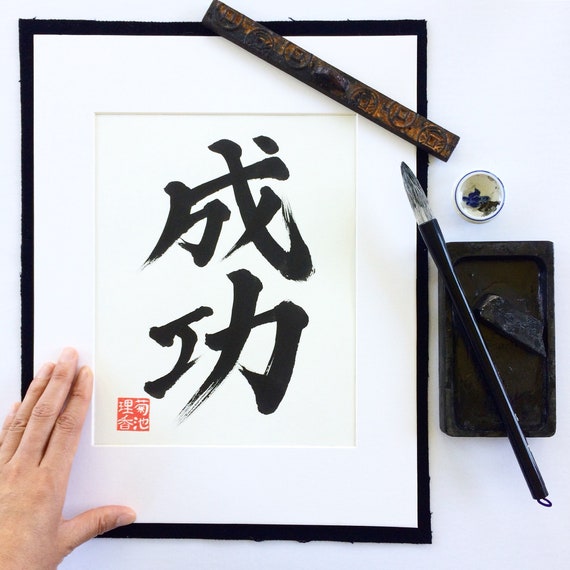 成功
菊池
理香